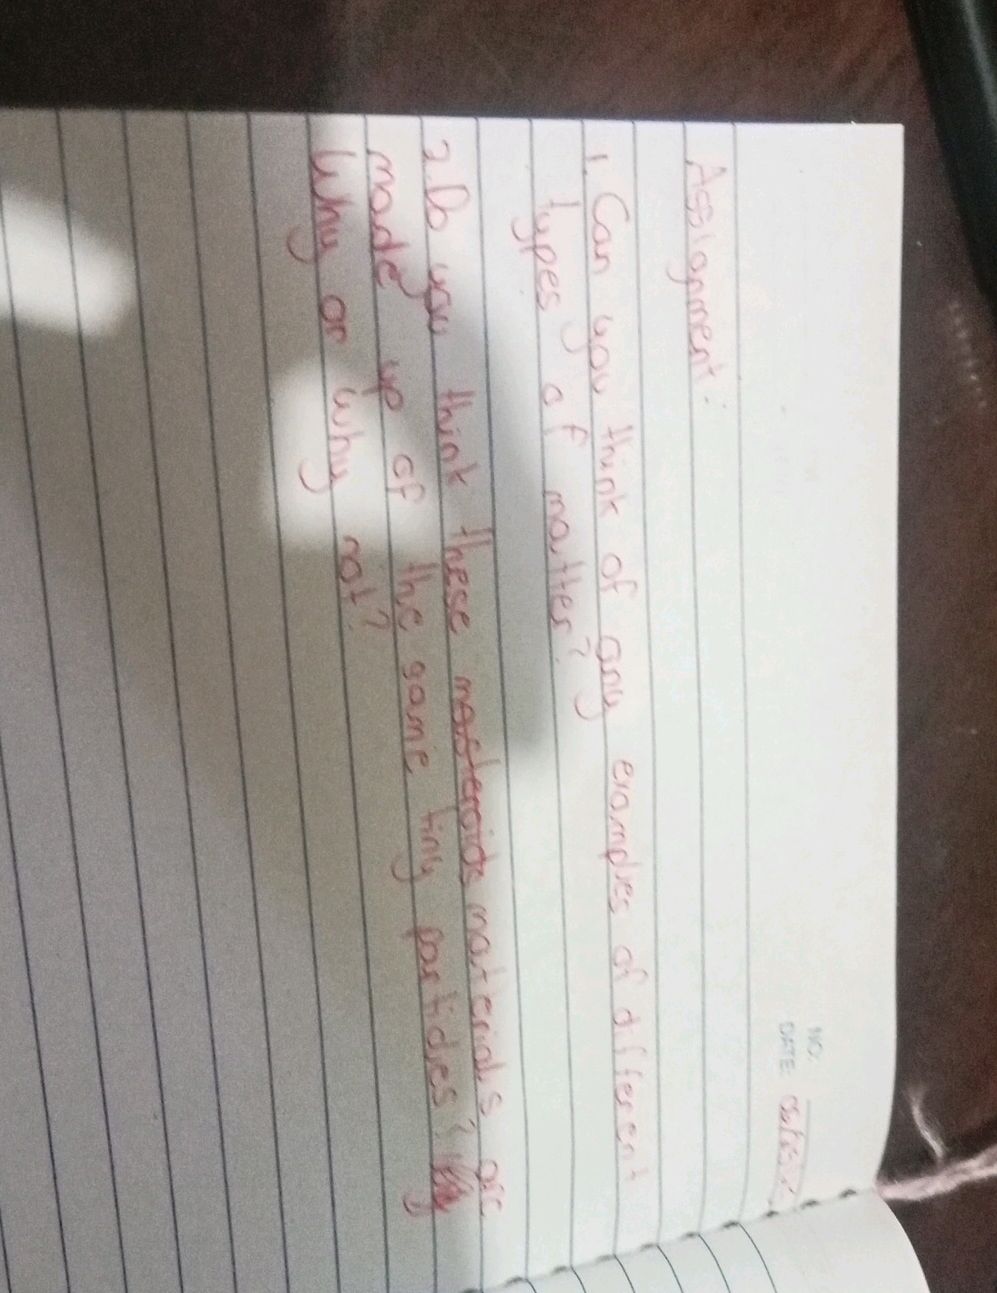 NO.
DATE:
Assignment:
1. Can you think of any examples of different
types of matter?
2. Do you think these materials are
made up of the same tiny particles?
Why or why not?